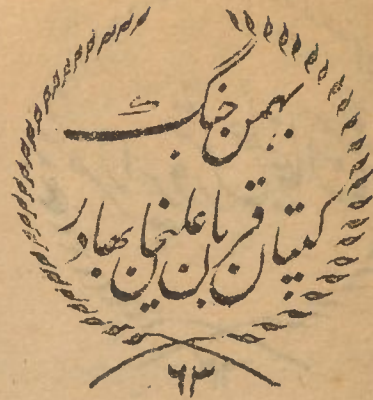 بهمن جنگ
کپتان قربان علیخان بهادر
٦٣